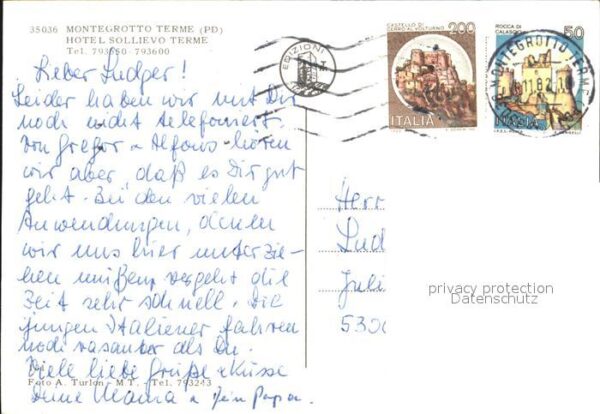 35036 MONTEGROTTO TERME (PD)
HOTEL SOLLIEVO TERME
Tel. 793600
Lieber Ludger!
Leider haben wir mit Dir
noch nicht telefoniert.
Von Gregor u Alfons hören
wir aber, daß es Dir gut
geht. Bei den vielen
Anwendungen, denen
wir uns hier unterzie-
hen müßen, vergeht die
Zeit sehr schnell. Die
jungen Italiener fahren
noch rasanter als Du.
Viele liebe Grüße u Küsse
Deine Mama u Dein Papa.
Foto A. Turlon - M.T. - Tel. 793243
EDIZIONI
CASTELLO DI
CERRO AL VOLTURNO
200
ITALIA
ROCCA DI
CALASCIO
50
MONTEGROTTO TERME
Herr
Lud
Juli
5300
privacy protection
Datenschutz